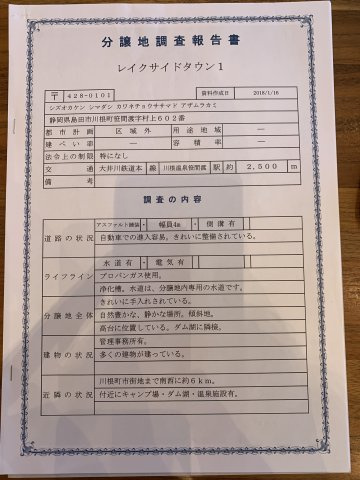 分譲地調査報告書
レイクサイドタウン1
〒 428-0101 資料作成日 2018/1/16
シズオカケン シマダシ カワネチョウササマド アザムラカミ
静岡県島田市川根町笹間渡字村上602番
都市計画 区域外 用途地域 ―
建ぺい率 ― 容積率 ―
法令上の制限 特になし
交通 大井川鉄道本 線 川根温泉笹間渡 駅 約 2,500 m
備考
調査の内容
道路の状況 アスファルト舗装 ・ 幅員4m ・ 側溝有
自動車での進入容易。きれいに整備されている。
ライフライン 水道有 ・ 電気有
プロパンガス使用。
浄化槽。水道は、分譲地内専用の水道です。
分譲地全体 きれいに手入れされている。
自然豊かな、静かな場所。傾斜地。
高台に位置している。ダム湖に隣接。
建物の状況 管理事務所有。
多くの建物が建っている。
近隣の状況 川根町市街地まで南西に約6km。
付近にキャンプ場・ダム湖・温泉施設有。